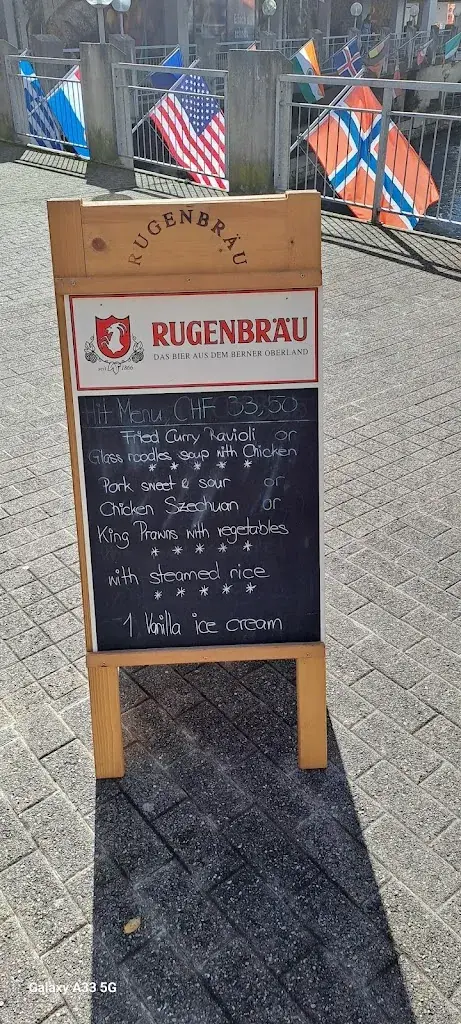 RUGENBRÄU
RUGENBRÄU
DAS BIER AUS DEM BERNER OBERLAND
seit 1866
Hit Menu CHF 33,50
Fried Curry Ravioli or
Glass noodles soup with Chicken
* * * * *
Pork sweet & sour or
Chicken Szechuan or
King Prawns with vegetables
* * * * *
with steamed rice
* * * * *
1 Vanilla ice cream
Galaxy A33 5G